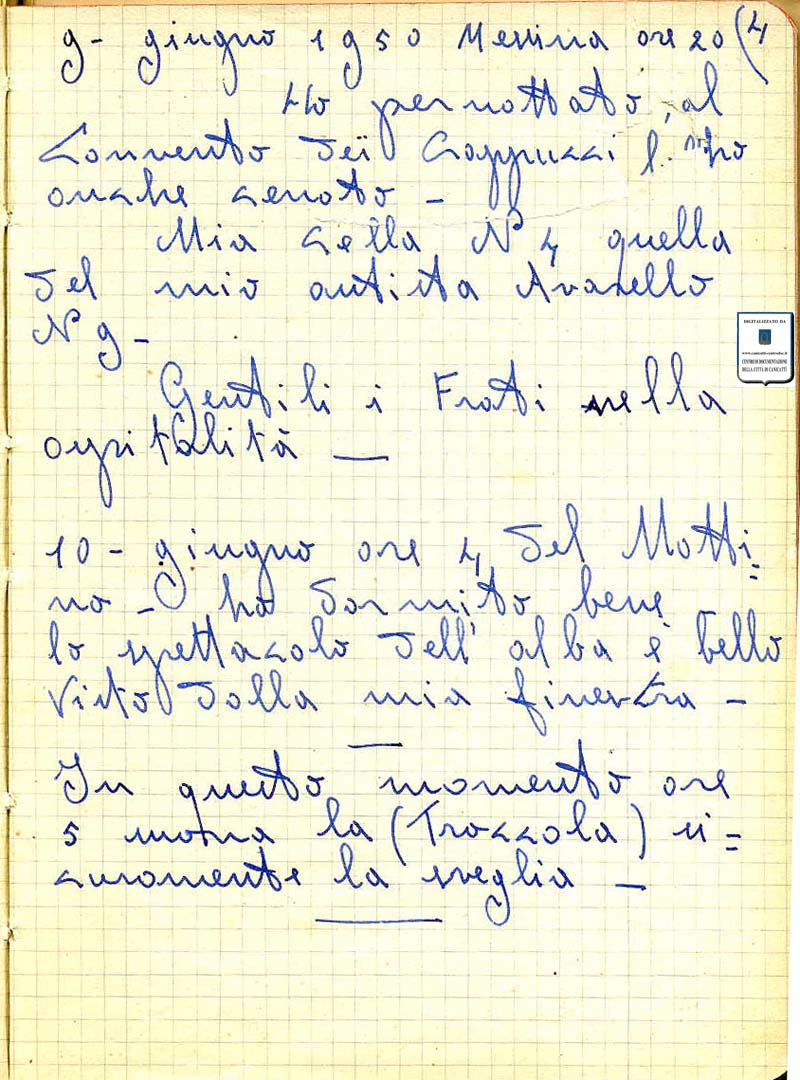 9- giugno 1950 Messina ore 20 (4
Ho pernottato, al
Convento dei Cappucci l. ho
anche cenato -
Mia cella N 4 quella
del mio autista Avarello
N 9 -
Gentili i Frati nella
ospitalità —
10 - giugno ore 4, del Matti=
no - ho dormito bene
lo spettacolo dell' alba è bello
visto dalla mia finestra -
In questo momento ore
5 suona la (Troccola) si=
curamente la sveglia -
DIGITALIZZATO DA
www.canicatti-centrodoc.it
CENTRO DI DOCUMENTAZIONE
DELLA CITTÀ DI CANICATTÌ